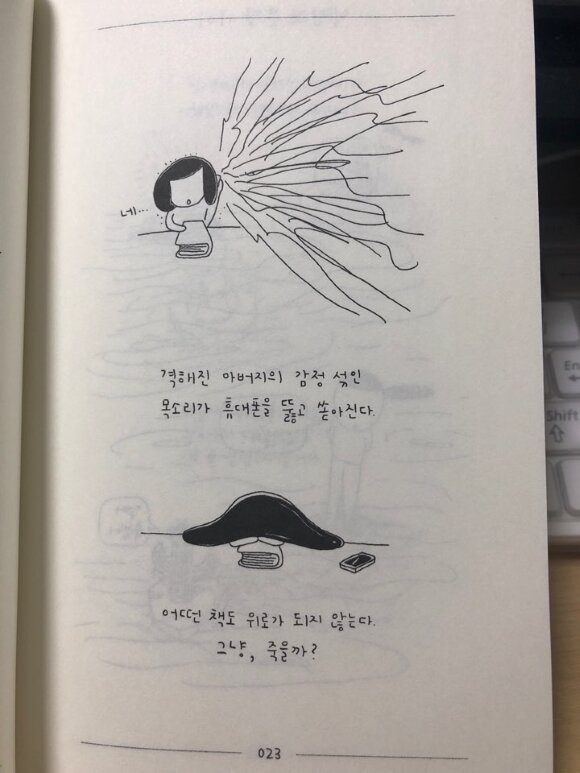 네…
격해진 아버지의 감정 섞인
목소리가 휴대폰을 뚫고 쏟아진다.
어떤 책도 위로가 되지 않는다.
그냥, 죽을까?
023
Ent
←
Shift
⇧